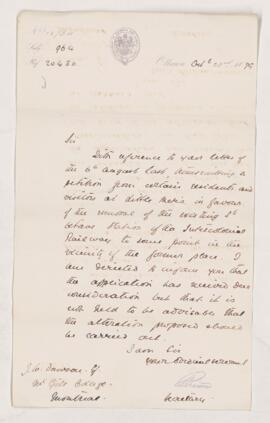 964
20480
Ottawa Oct 22nd 1879
Sir
With reference to your letter of
the 6th August last, transmitting a
petition from certain residents and
visitors at Little Metis in favour
of the removal of the existing St
Octave Station of the Intercolonial
Railway to some point in the
vicinity of the former place. I
am directed to inform you that
the application has received due
consideration but that it is
not held to be advisable that
the alteration proposed should
be carried out.
I am Sir
Your obedient servant
Secretary
J. W. Dawson
McGill College
Montreal